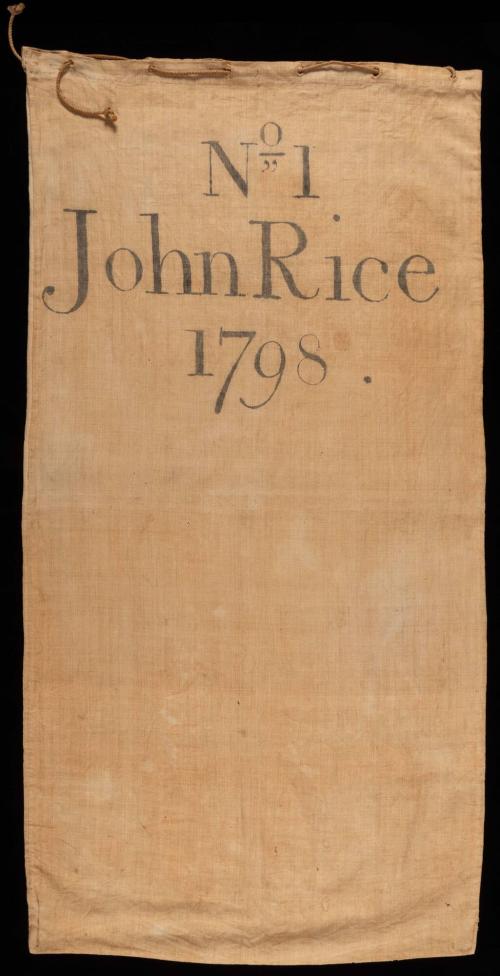 Nº 1
John Rice
1798.